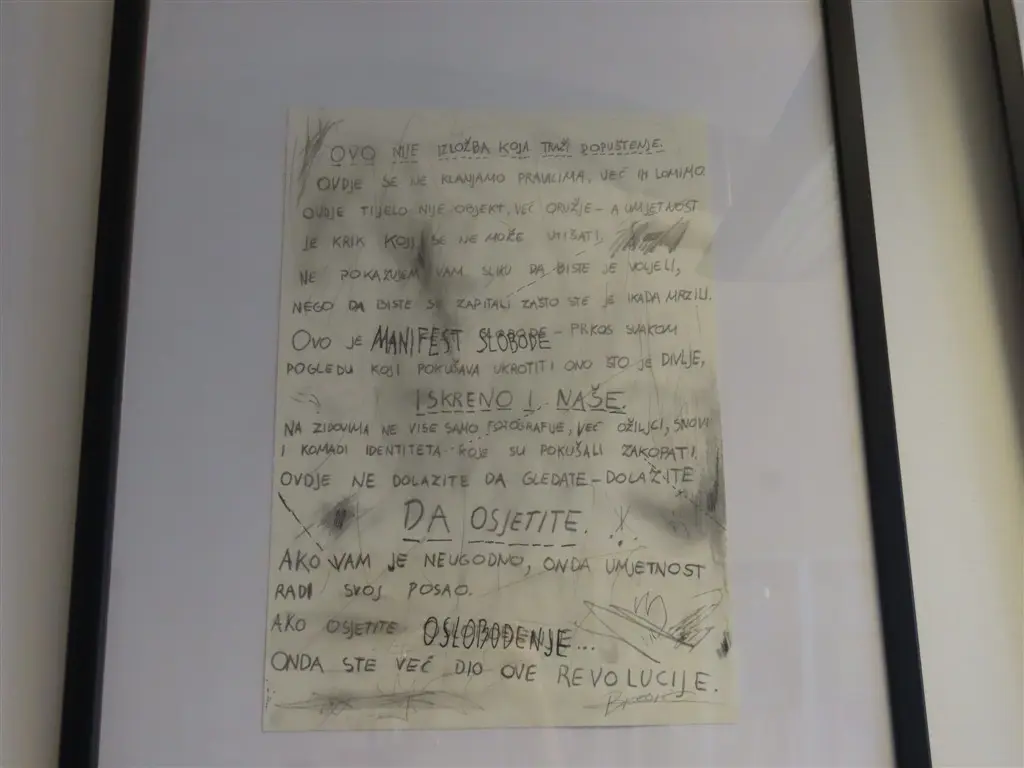 OVO NIJE IZLOŽBA KOJA TRAŽI DOPUŠTENJE.
OVDJE SE NE KLANJAMO PRAVILIMA, VEĆ IH LOMIMO
OVDJE TIJELO NIJE OBJEKT, VEĆ ORUŽJE - A UMJETNOST
JE KRIK KOJI SE NE MOŽE UTIŠATI,
NE POKAZUJEM VAM SLIKU DA BISTE JE VOLJELI,
NEGO DA BISTE SE ZAPITALI ZAŠTO STE JE IKADA MRZILI.
OVO JE MANIFEST SLOBODE - PRKOS SVAKOM
POGLEDU KOJI POKUŠAVA UKROTITI ONO ŠTO JE DIVLJE,
ISKRENO I NAŠE.
NA ZIDOVIMA NE VISE SAMO FOTOGRAFIJE, VEĆ OŽILJCI, SNOVI
I KOMADI IDENTITETA KOJE SU POKUŠALI ZAKOPATI.
OVDJE NE DOLAZITE DA GLEDATE - DOLAZITE
DA OSJETITE.
AKO VAM JE NEUGODNO, ONDA UMJETNOST
RADI SVOJ POSAO.
AKO OSJETITE OSLOBOĐENJE...
ONDA STE VEĆ DIO OVE REVOLUCIJE.